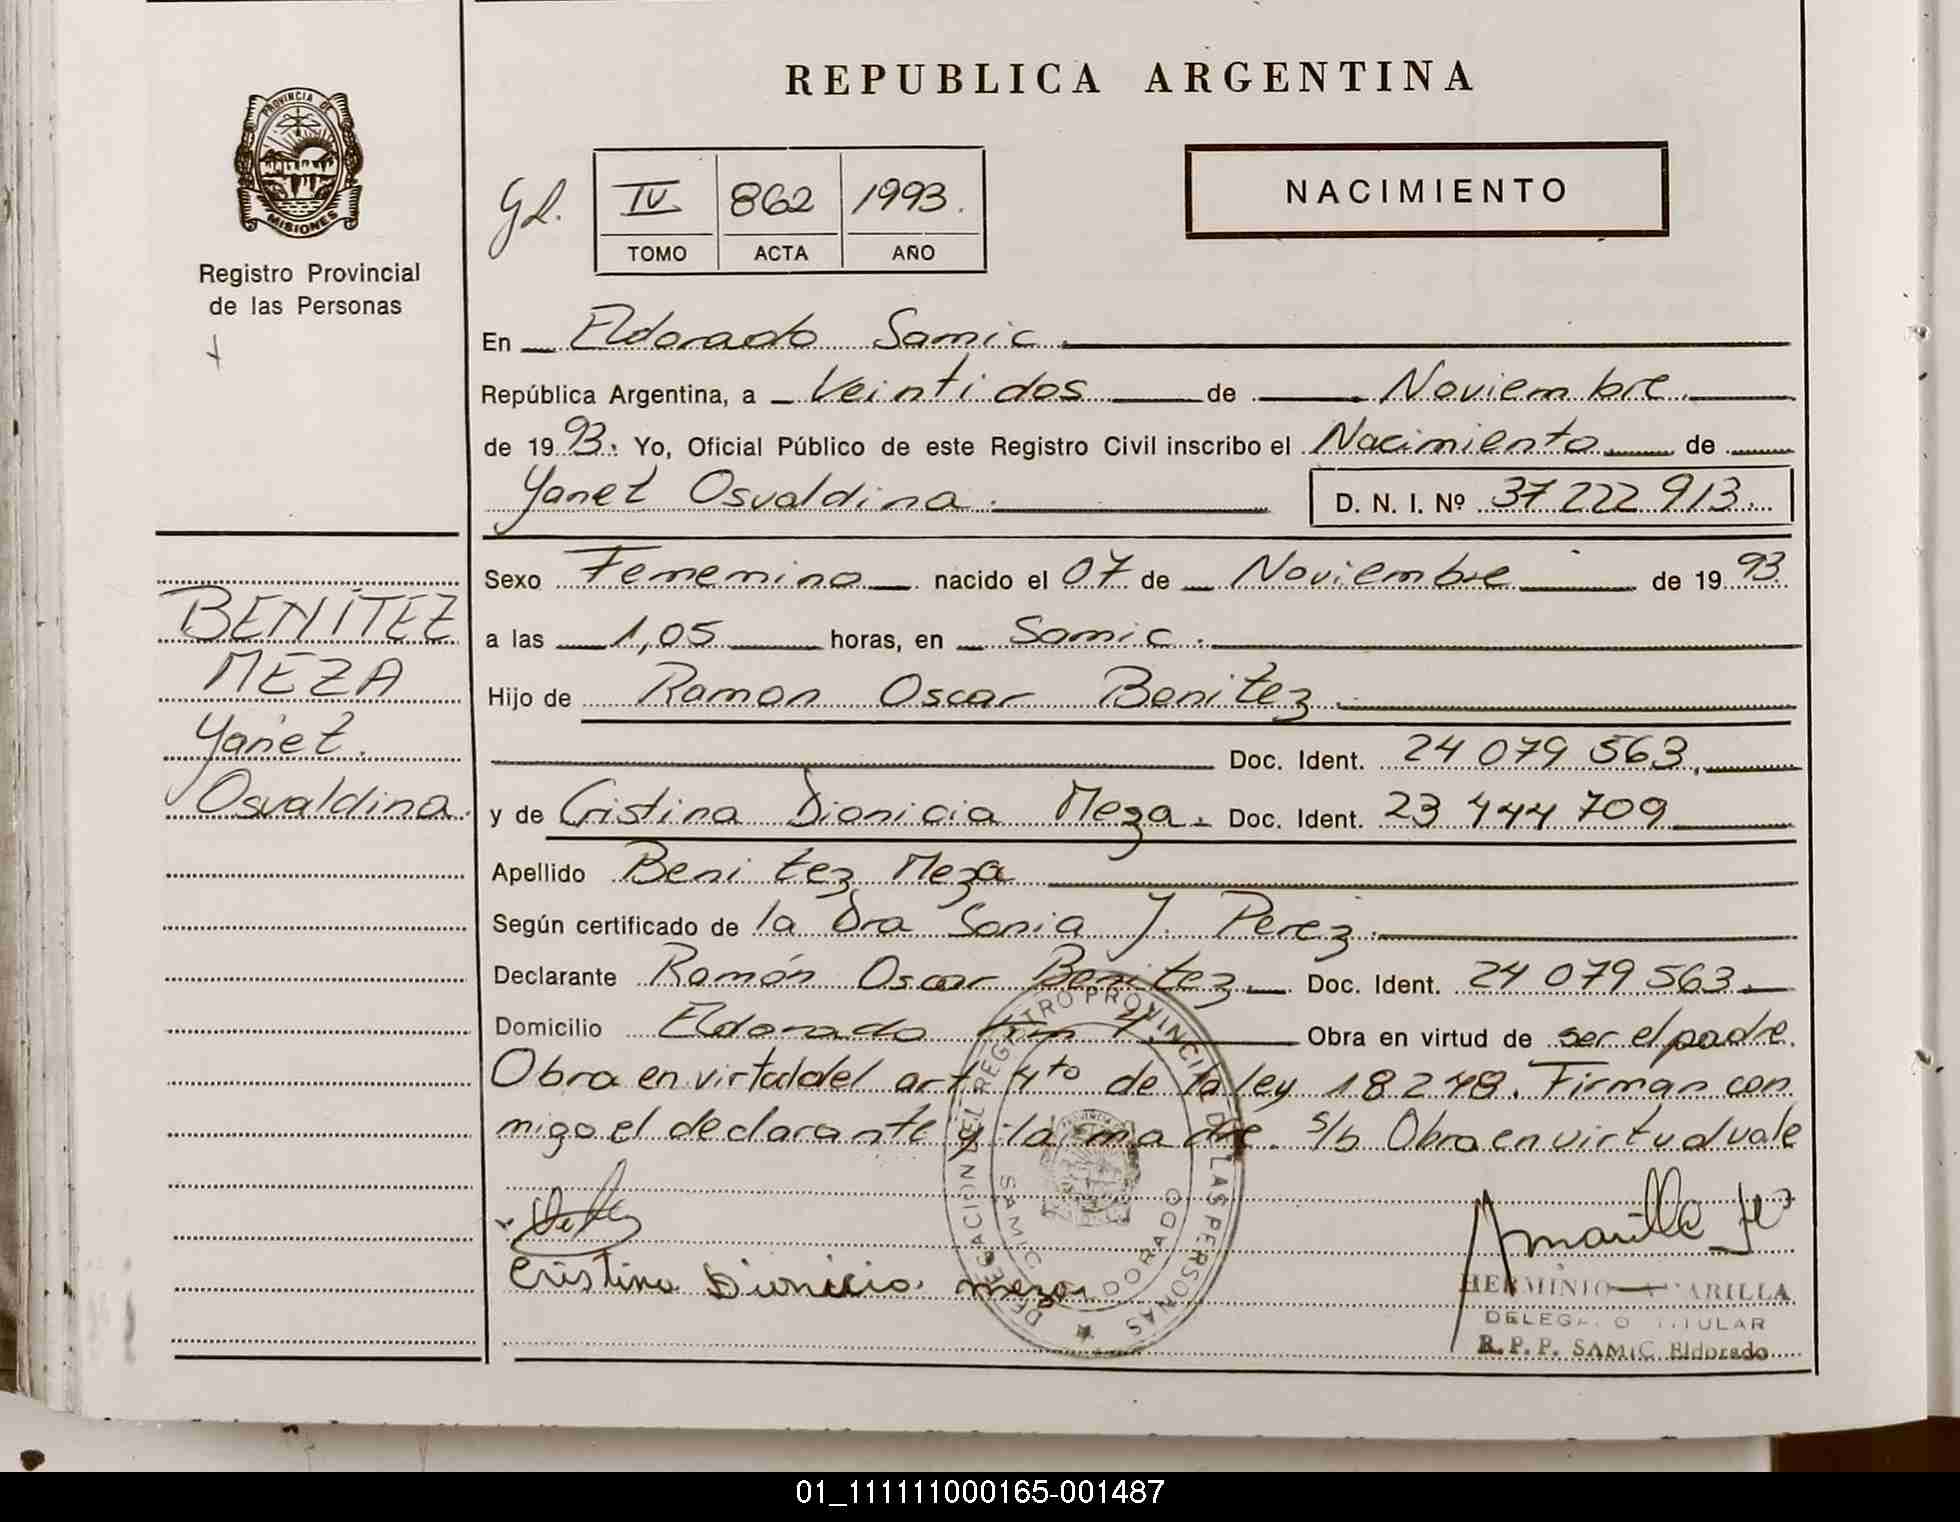 REPUBLICA ARGENTINA
PROVINCIA DE
MISIONES
Registro Provincial
de las Personas
IV 862 1993.
TOMO ACTA AÑO
NACIMIENTO
En Eldorado Samic.
República Argentina, a Veinti dos de Noviembre
de 1993. Yo, Oficial Público de este Registro Civil inscribo el Nacimiento de
Yanet Osvaldina. D. N. I. Nº 37 222 913.
Sexo Femenino nacido el 07 de Noviembre de 1993
a las 1,05 horas, en Samic.
Hijo de Ramon Oscar Benitez.
Doc. Ident. 24 079 563.
y de Cristina Dionicia Meza. Doc. Ident. 23 444 709
Apellido Benitez Meza
Según certificado de la Dra Sonia J. Perez.
Declarante Ramón Oscar Benitez Doc. Ident. 24 079 563.
Domicilio Eldorado Km 4. Obra en virtud de ser el padre.
Obra en virtud del art 4to de la ley 18248. Firman con
migo el declarante y la madre. s/b Obra en virtud vale
BENÍTEZ
MEZA
Yanet.
Osvaldina.
Cristina Dionicia meza
DELEGACION DEL REGISTRO PROVINCIAL DE LAS PERSONAS
SAMIC ELDORADO
Amarilla
HERMINIO AMARILLA
DELEGADO TITULAR
R. P. P. SAMIC Eldorado
01_111111000165-001487